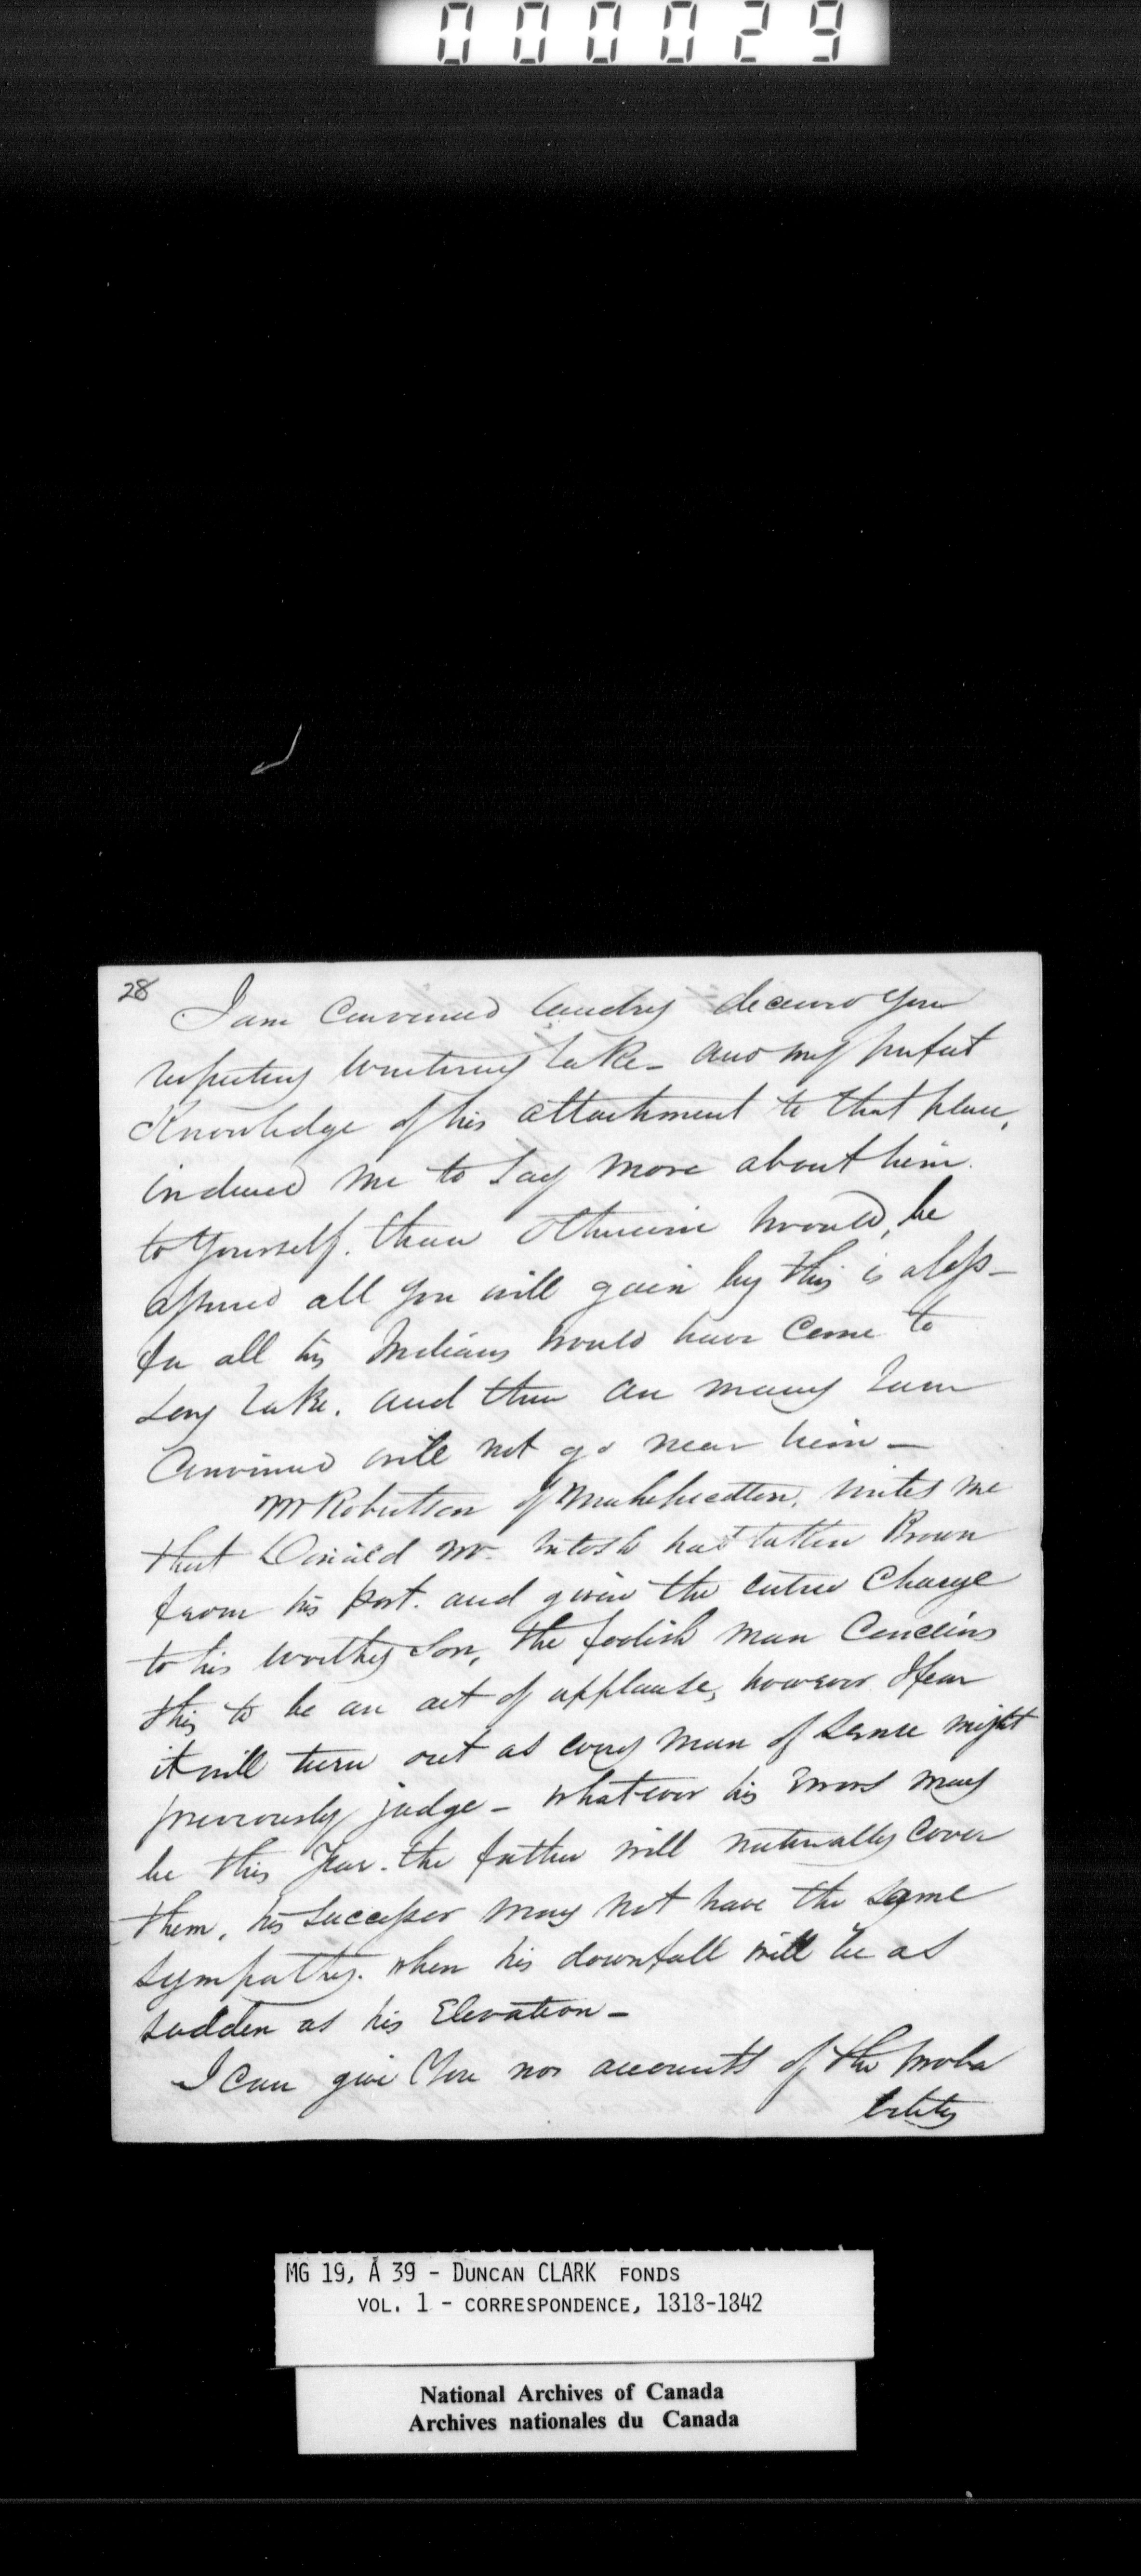 000029
28
I am Convinced Landry deceived you
respecting Wintering Lake_ and my perfect
Knowledge of his attachment to that place,
induced me to Say more about him.
to Yourself. than Otherwise would, be
assured all you will gain by this is a loss_
for all his Indians would have Come to
Long Lake. and then an many I am
Convinced will not go near him_
Mr Robertson of writes me
that Donald Mc Intosh has taken Brown
from his post. and given the entire Charge
to his worthy Son, the foolish man Conceives
this to be an act of applause, however I fear
it will turn out as every man of Sense might
previously judge_ whatever his Errors may
be this Year. the father will naturally Cover
them, his Successor may not have the Same
sympathy. when his downfall will be as
sudden as his Elevation_
I can give You no accounts of the proba
bility
MG 19, A 39 - DUNCAN CLARK FONDS
VOL. 1 - CORRESPONDENCE, 1818-1842
National Archives of Canada
Archives nationales du Canada